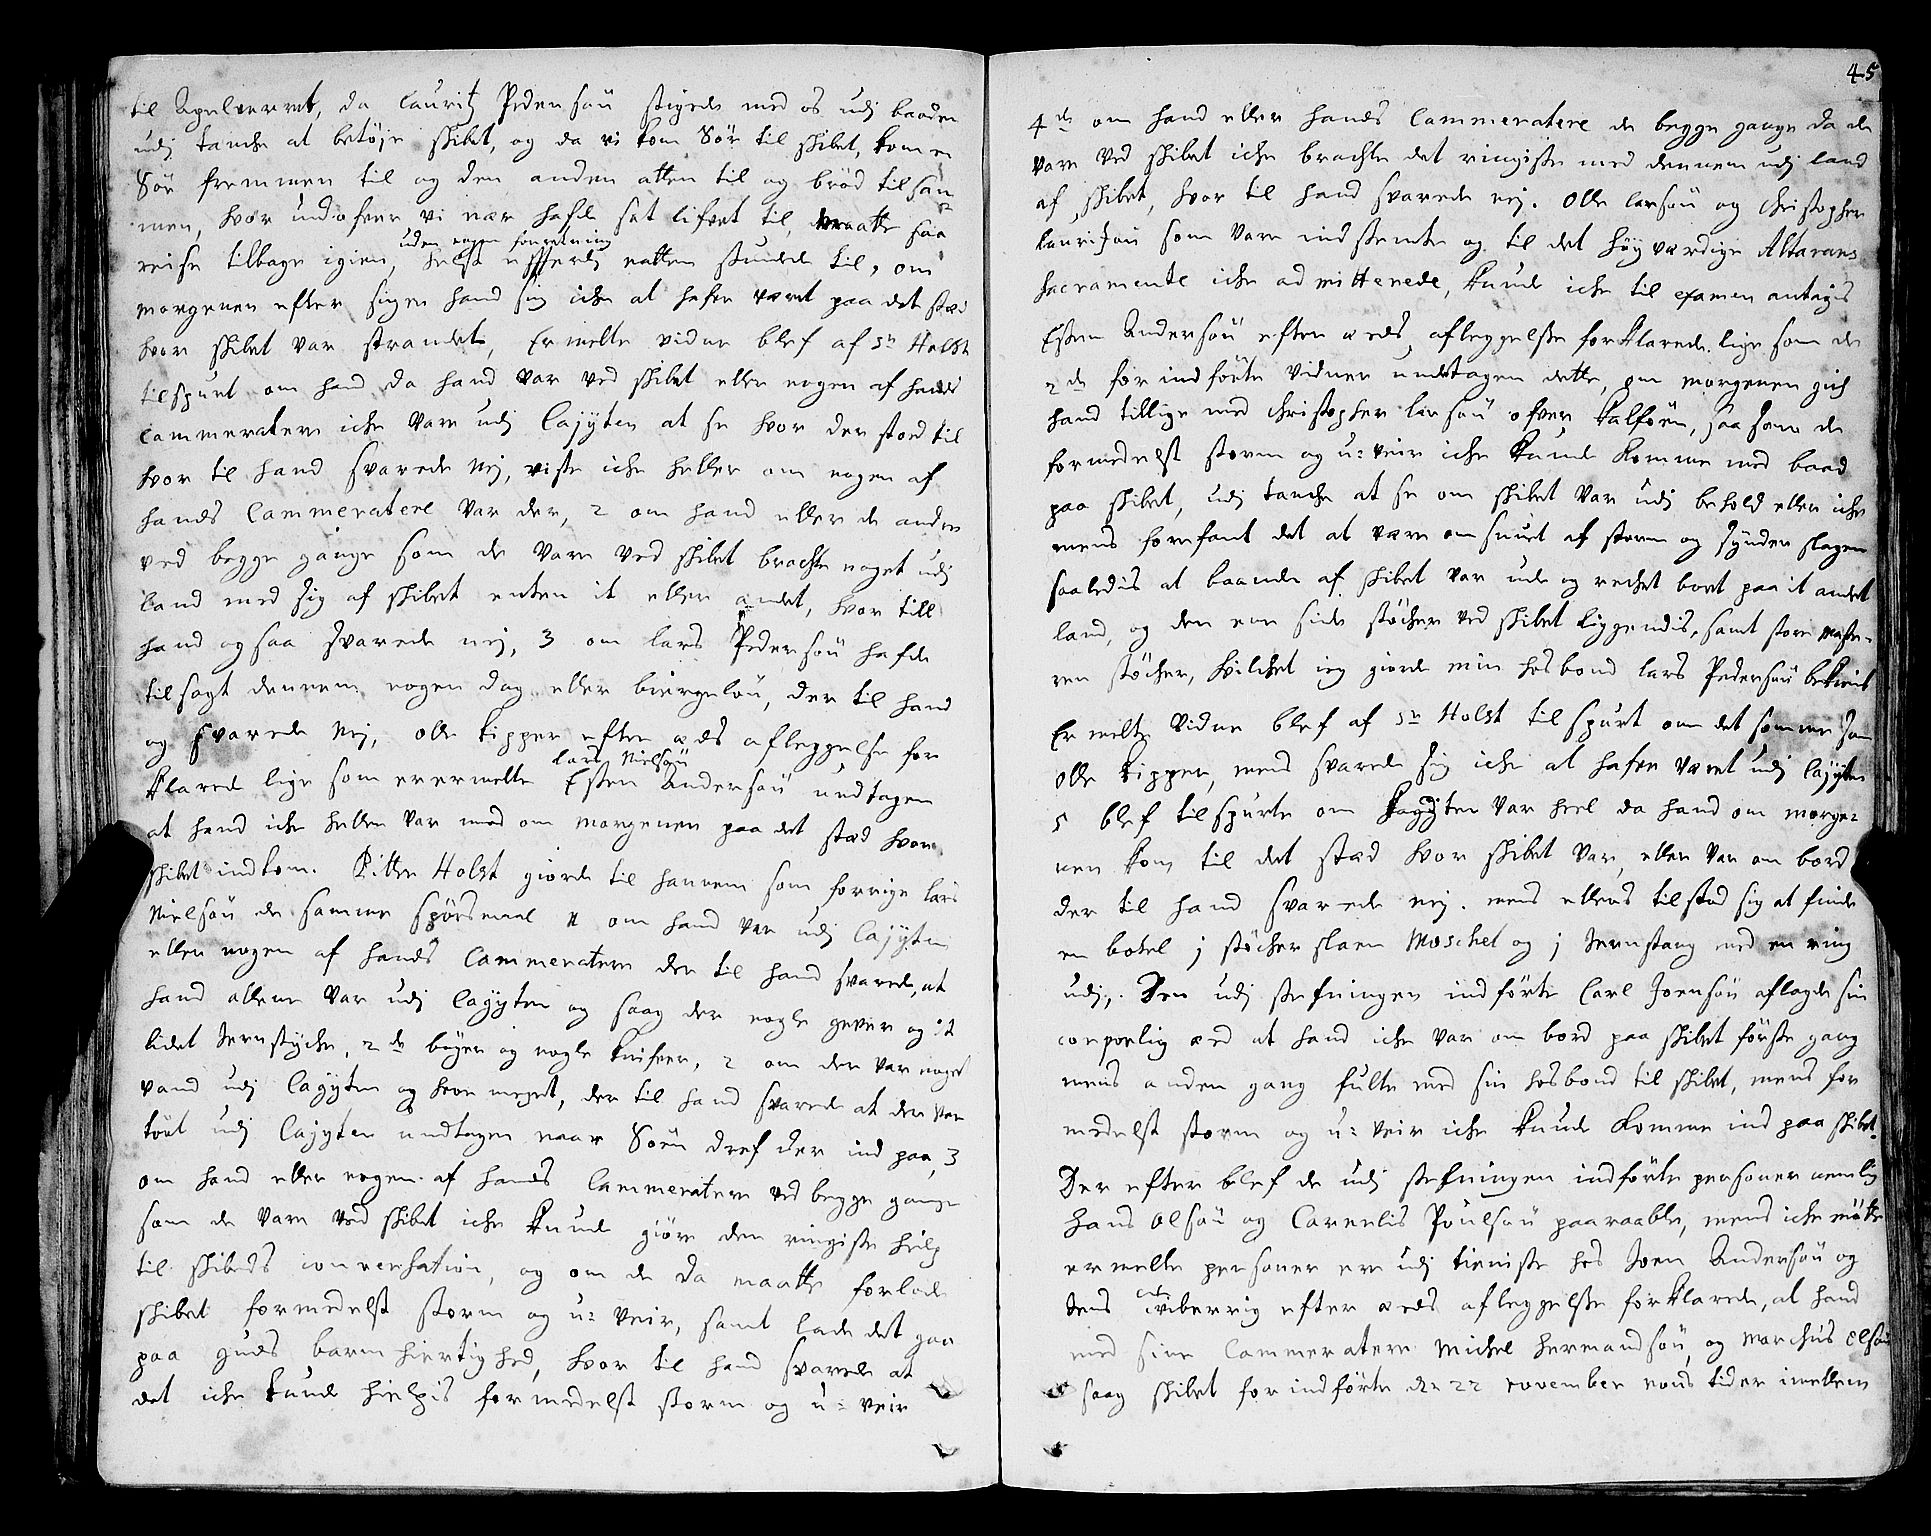 til Apelverret, da Lauritz Pedersøn stigede med os udj baaden
udj tanche at betøje skibet, og da vi kom Sør til skibet, kom en
Søe fremmen til og den anden atten til og brød tilsam
men, hvor udofver vi nær hafde sat lifvet til, maatte saa
uden nogen foretning
reise tilbage igien, helst effterdj natten stundede til, om
morgenen efter siger hand sig iche at hafve været paa det stæd
hvor skibet var strandet, Ermelte vidne blef af Sr Holst
tilspurt om hand da hand var ved skibet eller nogen af hands
Cammerattere iche vare udj Cajyten at se hvor der stod til
hvor til hand svarede Nej, viste iche heller om nogen af
hands Cammeratere var der, 2 om hand eller de andre
ved begge gange som de vare ved skibet brachte noget udj
land med sig af skibet enten it eller andet, hvor till
hand ogsaa svarede nej, 3 om Lars Pedersøn hafde
tilsagt dennem nogen dag eller biergeløn, der til hand
og svarede Nej, Olle Kipper efter æds afleggelse for
Lars Nielsøn
klarede lige som ermelte Essen Andersøn undtagen
at hand iche heller var med om morgenen paa det stæd hvor
skibet indkom. Pitter Holst giorde til hannem som forrige Lars
Nielsøn de samme spørsmaal 1 om hand var udj Cajyten
eller nogen af hands Cammeratere der til hand svarede, at
hand allene var udj Cajyten og saag der nogle gever og it
lidet Jernstyche, 2de bøjer og nogle knifver, 2 om der var noget
vand udj Cajyten og hvor meget, der til hand svarede at der var
tørt udj Cajyten undtagen naar Søen dref der ind paa, 3
om hand eller nogen af hands Cammeratere ved begge gange
som de vare ved skibet iche kunde giøre den ringiste hielp
til skibeds conversation, og om de da maatte forlade
skibet formedelst storm og u: veir, samt lade det gaa
paa guds barmhiertighed, hvor til hand svarede at
det iche kunde hielpis formedelst storm og u: veir
45
4de om hand eller hands Cammeratere de begge gange da de
vare ved skibet iche brachte det ringiste med dennem udj land
af skibet, hvor til hand svarede nej. Olle Larsøn og Christopher
Lauritzøn som vare indstemte og til det høyværdige Altarens
Sacramente iche admitterede, kunde iche til examen antagis
Essen Andersøn efter æds afleggelsse forklarede lige som de
2de forindførte vidner undtagen dette, om morgenen gich
hand tillige med Christopher Larsøn ofver Kalføen, saa som de
formedelst storm og u: veir iche kunde komme med baad
paa skibet, udj tanche at se om skibet var udj behold eller iche
mens forefant det at være omsnuet af storm og synder slagen
saaledis at baande af skibet var ude og rechet bort paa it andet
land, og den ene side støcher ved skibet liggendis, samt store maste-
ren støcher, hvilchet jeg giorde min hosbond Lars Pedersøn bekient
Ermelte vidne blef af Sr Holst tilspurt om det samme som
Olle Kipper, mens svarede sig iche at hafve været udj Cajyten
5 blef tilspurte om Kagyten var heel da hand om morge-
nen kom til det stæd hvor skibet var, eller var om bord
der til hand svarede nej. mens ellers tilstod sig at finde
en botel j støcher slaen Moschet og j Jernstang med en ring
udj. Den udj stefningen indførte Carl Joensøn aflagde sin
corporlig æd at hand iche var om bord paa skibet første gang
mens anden gang fulte med sin hosbond til skibet, mens for
medelst storm og u: veir iche kunde komme ind paa skibet.
Der efter blef de udj stefningen indførte personer nemlig
Hans Olsøn og Cornelis Poulsøn paaraabte, mens iche møtte
ermelte personer ere udj tieniste hos Joen Andersøn og
Jens efter æds afleggelsse forklarede, at hand
med sine Cammeratere Michel Hermandsøn, og Marchus Olsøn
saag skibet forindførte de 22 november nons tider imellem